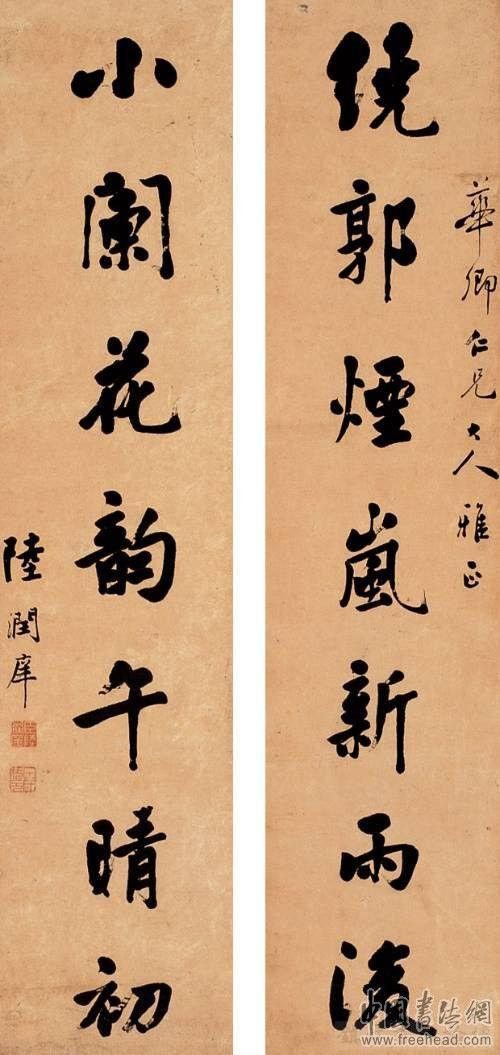 華卿仁兄大人雅正
繞郭煙嵐新雨後
小闌花韵午晴初
陸潤庠
中國書法網
www.freehead.com